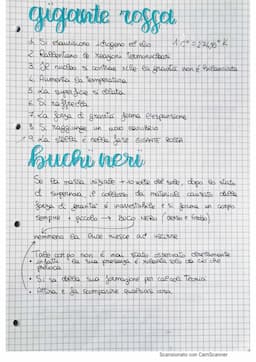 gigante rossa
1. Si esauriscono idrogeno ed elio
2. Rallentano le reazioni termonucleari
3. Il nucleo si contrae xche la gravità non è bilanciata
4. Aumenta la temperatura
5. La superficie si dilata
6. Si raffredda
7. La forza di gravità ferma l'espansione
8. Si raggiunge un nuovo equilibrio
9. La stella è nella fase GIGANTE ROSSA
buchi neri
Se la massa iniziale + 10 volte del sole, dopo lo stadio
di supernova, il collasso del materiale causato dalla
forza di gravità è inarrestabile e si forma un corpo
sempre + piccolo → BUCO NERO (denso e freddo)
nemmeno la luce riesce ad uscirne
corpo non è mai stato osservato direttamente
infatti la sua presenza è solo da ciò che
provoca
Si sa della sua formazione per calcoli Teorici
Attira e fa scomparire qualsiasi cosa
Scansionato con CamScanner